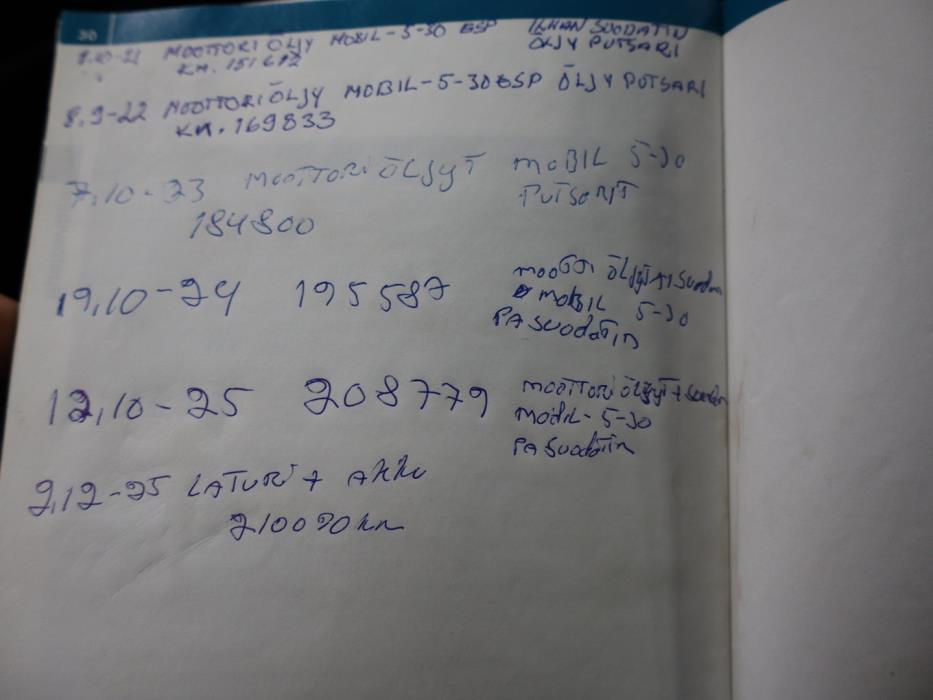 30
8.10-21 MOOTTORI ÖLJY MOBIL-5-30 ESP ILMAN SUODATIN
KM. 151672 ÖLJY PUTSARI
8.9-22 MOOTTORI ÖLJY MOBIL-5-30 ESP ÖLJY PUTSARI
KM. 169833
7.10-23 MOOTTORI ÖLJYT MOBIL 5-30
184800 PUTSARIT
19.10-24 195587
ÖLJYT
MOBIL 5-30
PA SUODATIN
12.10-25 208779 MOOTTORI ÖLJYT +
MOBIL-5-30
PA SUODATIN
2.12-25 LATURI + AKKU
210090 km